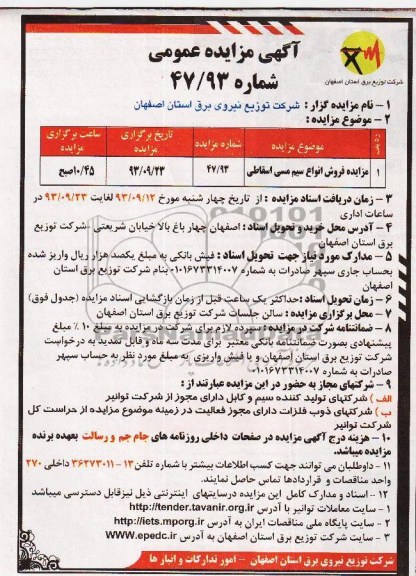 شرکت توزیع برق استان اصفهان
آگهی مزایده عمومی
شماره ۴۷/۹۳
۱ - نام مزایده گزار : شرکت توزیع نیروی برق استان اصفهان
۲ - موضوع مزایده :
ردیف
موضوع مزایده
شماره مزایده
تاریخ برگزاری مزایده
ساعت برگزاری مزایده
۱
مزایده فروش انواع سیم مسی اسقاطی
۴۷/۹۳
۹۳/۰۹/۲۳
۱۰/۴۵صبح
۳ - زمان دریافت اسناد مزایده : از تاریخ چهار شنبه مورخ ۹۳/۰۹/۱۲ لغایت ۹۳/۰۹/۲۳ در
ساعات اداری
۴ - آدرس محل خرید و تحویل اسناد : اصفهان چهار باغ بالا خیابان شریعتی -شرکت توزیع
برق استان اصفهان
۵ - مدارک مورد نیاز جهت تحویل اسناد : فیش بانکی به مبلغ یکصد هزار ریال واریز شده
بحساب جاری سپهر صادرات به شماره ۰۱۰۱۶۷۳۳۱۴۰۰۷ بنام شرکت توزیع برق استان
اصفهان
۶ - زمان تحویل اسناد :حداکثر یک ساعت قبل از زمان بازگشایی اسناد مزایده (جدول فوق)
۷ - محل برگزاری مزایده : سالن جلسات شرکت توزیع برق استان اصفهان
۸ - ضمانتنامه شرکت در مزایده: سپرده لازم برای شرکت در مزایده به مبلغ ۱۰٪ مبلغ
پیشنهادی بصورت ضمانتنامه بانکی معتبر برای مدت سه ماه و قابل تمدید به درخواست
شرکت توزیع برق استان اصفهان و یا فیش واریزی به مبلغ مورد نظر به حساب سپهر
صادرات به شماره ۰۱۰۱۶۷۳۳۱۴۰۰۷
۹ - شرکتهای مجاز به حضور در این مزایده عبارتند از :
الف ) شرکتهای تولید کننده سیم و کابل دارای مجوز از شرکت توانیر
ب ) شرکتهای ذوب فلزات دارای مجوز فعالیت در زمینه موضوع مزایده از حراست کل
شرکت توانیر
۱۰ - هزینه درج آگهی مزایده در صفحات داخلی روزنامه های جام جم و رسالت بعهده برنده
مزایده میباشد.
۱۱ - داوطلبان می توانند جهت کسب اطلاعات بیشتر با شماره تلفن ۱۳-۳۶۲۷۳۰۱۱ داخلی ۲۷۰
واحد مناقصات و قراردادها تماس حاصل نمایند.
۱۲ - اسناد و مدارک کامل این مزایده درسایتهای اینترنتی ذیل نیزقابل دسترسی میباشد
۱ - سایت معاملات توانیر با آدرس http://tender.tavanir.org.ir
۲ - سایت پایگاه ملی مناقصات ایران به آدرس http://iets.mporg.ir
۳ - سایت شرکت توزیع برق استان اصفهان به آدرس www.epedc.ir
شرکت توزیع نیروی برق استان اصفهان - امور تدارکات و انبار ها